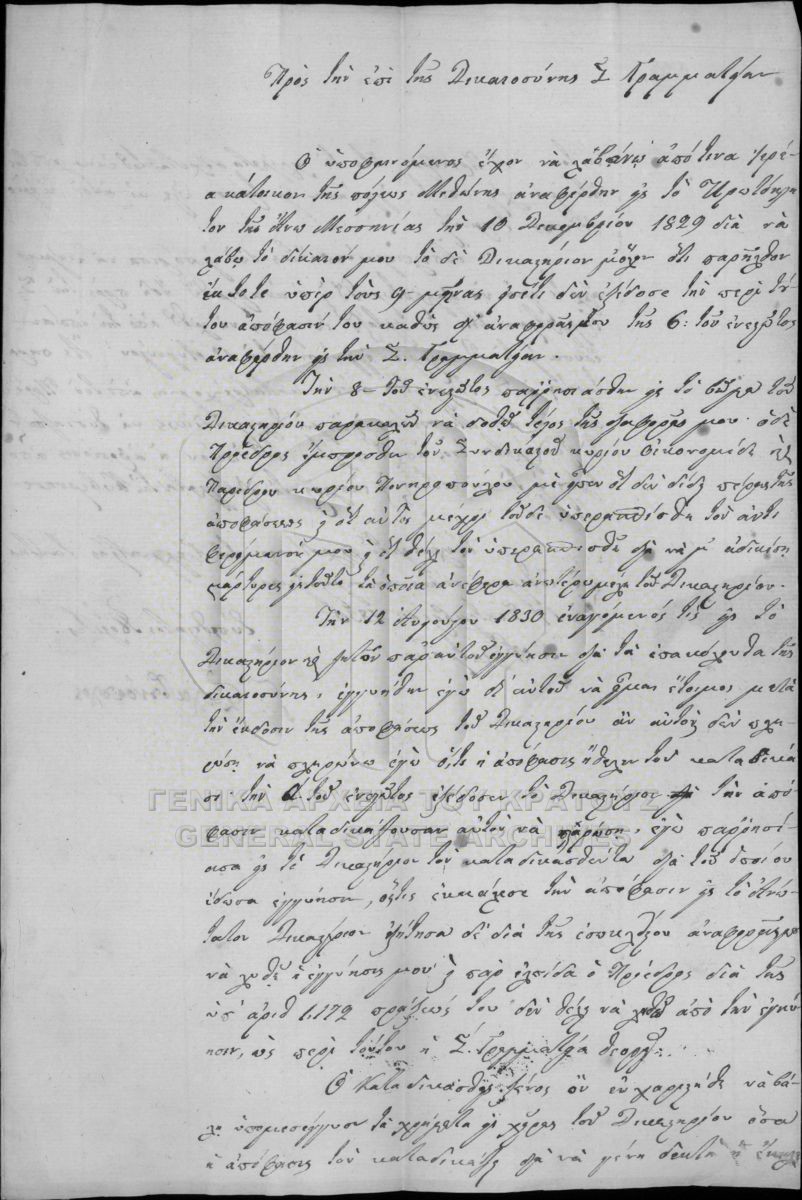 Πρὸς τὴν ἐπὶ τῆς Δικαιοσύνης Σ. Γραμματείαν
Ὁ ὑποφαινόμενος ἔχων νὰ λάβω ἀπό τινα
κάτοικον τῆς πόλεως Μεθώνης ἀναφέρθην εἰς τὸ Πρωτόκλη
τον τῆς Ἄνω Μεσσηνίας τὴν 10 Δεκεμβρίου 1829 διὰ νὰ
λάβω τὸ δίκαιόν μου τὸ δὲ Δικαστήριον μόλον ὅτι παρῆλθον
ἔκτοτε ὑπὲρ τοὺς 9 μῆνας εἰσέτι δὲν ἐξέδοσε τὴν περὶ τού
του ἀπόφασίν του καθὼς δι' ἀναφορᾶς μου τῆς 6: τοῦ ἐνεστῶτος
ἀναφέρθην εἰς τὴν Σ. Γραμματείαν.
Τὴν 8 τοῦ ἐνεστῶτος παρρησιάσθην εἰς τὸ βῆμα τοῦ
Δικαστηρίου παρακαλῶν νὰ δοθῇ τέλος τῆς διαφορᾶς μου ὁ δὲ
Πρόεδρος ἔμπροσθεν τοῦ Συνδικαστοῦ κυρίου Οἰκονομίδη καὶ
Παρέδρου κυρίου Πονηροπούλου, μὲ εἶπεν ὅτι δὲν δίδει πέρας τῆς
ἀποφάσεως καὶ ὅτι αὐτὸς μέχρι τοῦδε ὑπερασπίσθη τοῦ ἀντι
φερομένου μου καὶ ὅτι θέλει τὸν ὑπερασπισθῆ διὰ νὰ μ' ἀδικήσῃ
μάρτυρες εἰς τοῦτο τὰ ὁποῖα ἀνέφερα ἀνωτέρω μέλη τοῦ Δικαστηρίου.
Τὴν 12 Αὐγούστου 1830 ἐναγόμενός τις εἰς τὸ
Δικαστήριον καὶ ζητῶν παρ' αὐτοῦ ἐγγύησιν διὰ τὰ ἐπακόλουθα τῆς
δικαιοσύνης, ἐγγυήθην ἐγὼ δι' αὐτοῦ νὰ ἦμαι ἕτοιμος μετὰ
τὴν ἔκδοσιν τῆς ἀποφάσεως τοῦ Δικαστηρίου ἂν αὐτὸς δὲν πλη
ρώσῃ νὰ πληρώνω ἐγὼ ὅ,τι ἡ ἀπόφασις ἤθελεν τοῦ καταδικά
σει τὴν τοῦ ἐνεστῶτος ἐξέδοσεν τὸ Δικαστήριον τὴν ἀπό
φασιν καταδικάζουσαν αὐτὸν νὰ πληρώσῃ, ἐγὼ παρρησί
ασα εἰς τὸ Δικαστήριον τὸν καταδικασθέντα διὰ τοῦ ὁποίου
ἔδωσα ἐγγύησιν, ὅστις ἐκκάλεσε τὴν ἀπόφασιν εἰς τὸ Ἀνώ
τατον Δικαστήριον ἐζήτησα δὲ διὰ τῆς ἐσωκλείστου ἀναφορᾶς μου
νὰ λυθῇ ἡ ἐγγύησίς μου καὶ παρ' ἐλπίδα ὁ Πρόεδρος διὰ τῆς
ὑπ' ἀριθ 1,172 πράξεώς του δὲν θέλει νὰ λυθῶ ἀπὸ τὴν ἐγγύ
ησιν, ὡς περὶ τούτου ἡ Σ. Γραμματεία θεωρεῖ.
Ὁ καταδικασθεὶς ξένος ὢν εὐχαριστήθη νὰ βά
λῃ ὑπομεσέγγυον τὰ χρήματα εἰς χεῖρας τοῦ Δικαστηρίου ὅσα
ἡ ἀπόφασις τὸν καταδικάζει διὰ νὰ γένῃ δεκτὴ ἡ
ΓΕΝΙΚΑ ΑΡΧΕΙΑ ΤΟΥ ΚΡΑΤΟΥΣ
GENERAL STATE ARCHIVES